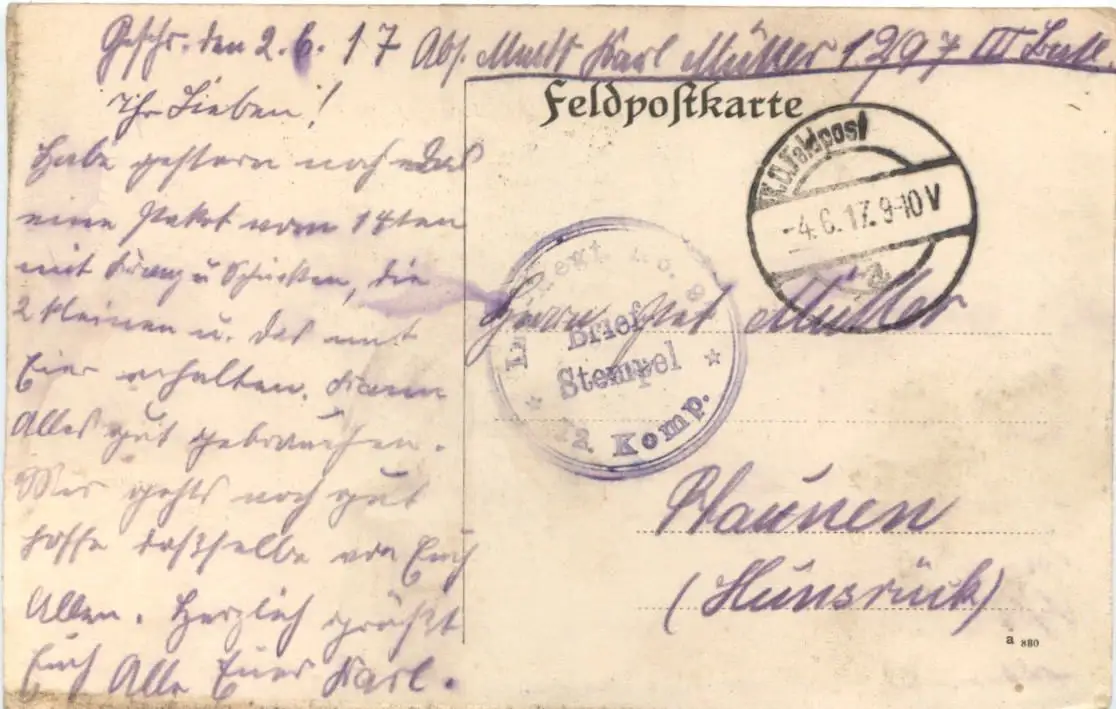 Geschr. den 2.6.17 Abs. Musk Karl Müller 12/97 III Batl.
Feldpostkarte
Ihr Lieben!
Habe gestern noch das
eine Paket vom 14ten
mit u Schinken, die
2 kleinen u. das mit
Eier erhalten. Kann
Alles gut gebrauchen.
Mir gehts noch gut
hoffe dasselbe von Euch
Allen. Herzlich grüßt
Euch Alle Euer Karl.
K.D.Feldpost
-4.6.17. 9-10 V
Brief
Stempel
12. Komp.
Herrn Müller
Rhaunen
(Hunsrück)
a 880